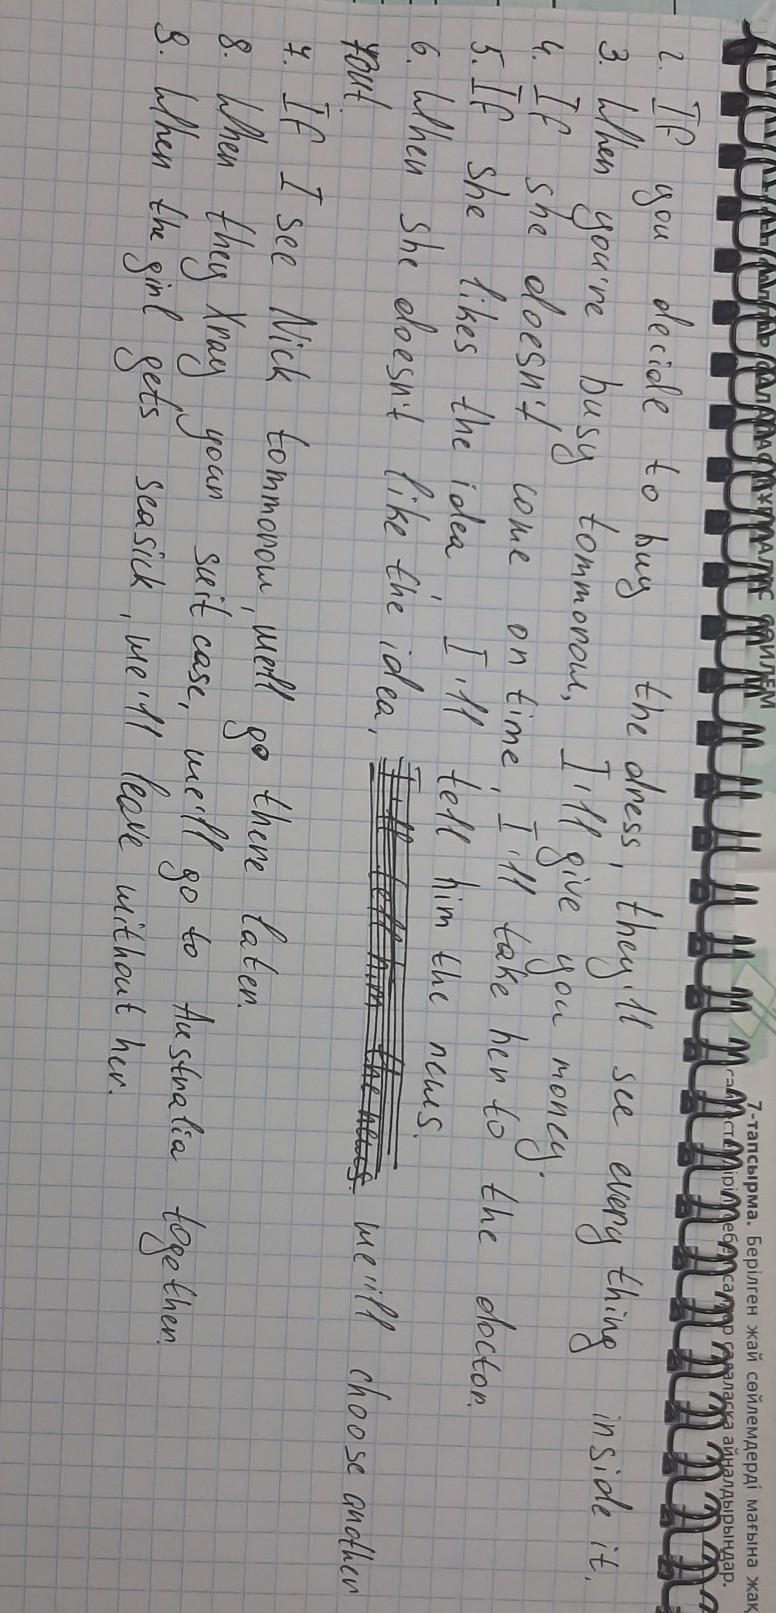 7-тапсырма. Берілген жай сөйлемдерді мағына жақ
салаласқа айналдырыңдар.
2. If you decide to buy the dress, they'll see every thing inside it.
3. When you're busy tommorow, I'll give you money.
4. If she doesn't come on time, I'll take her to the doctor.
5. If she likes the idea, I'll tell him the news.
6. When she doesn't like the idea, I'll tell him the news. we'ill choose another
rout.
7. If I see Nick tommorow, we'll go there later.
8. When they Xray your suit case, we'll go to Australia together.
9. When the girl gets seasick, we'll leave without her.